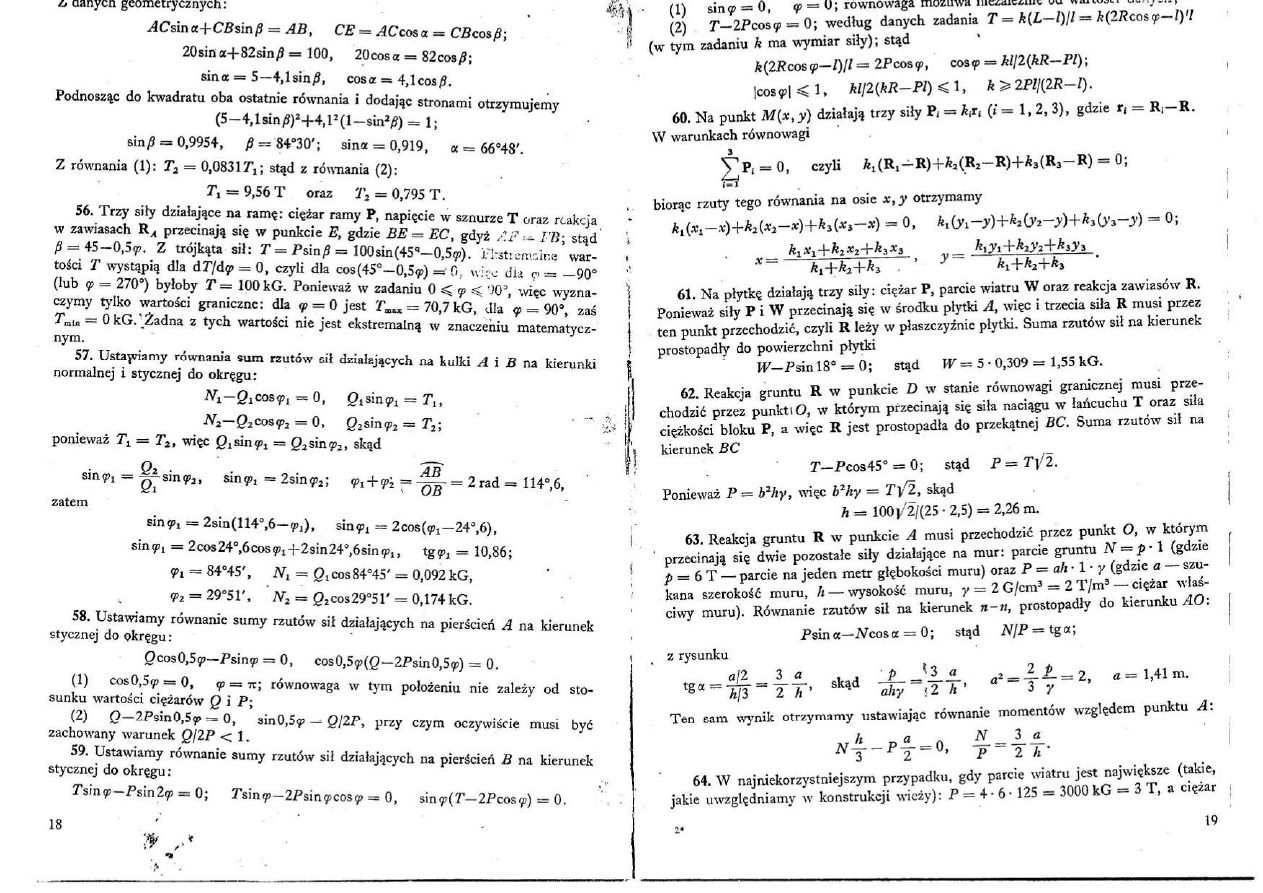 Z danych geometrycznych:
ACsinα+CBsinβ = AB, CE = ACcosα = CBcosβ;
20sinα+82sinβ = 100, 20cosα = 82cosβ;
sinα = 5−4,1sinβ, cosα = 4,1cosβ.
Podnosząc do kwadratu oba ostatnie równania i dodając stronami otrzymujemy
(5−4,1sinβ)²+4,1²(1−sin²β) = 1;
sinβ = 0,9954, β = 84°30'; sinα = 0,919, α = 66°48'.
Z równania (1): T₂ = 0,0831T₁; stąd z równania (2):
T₁ = 9,56 T oraz T₂ = 0,795 T.
56. Trzy siły działające na ramę: ciężar ramy P, napięcie w sznurze T oraz reakcja
w zawiasach R_A przecinają się w punkcie E, gdzie BE = EC, gdyż AF = FB; stąd
β = 45−0,5φ. Z trójkąta sił: T = Psinβ = 100sin(45°−0,5φ). Ekstremalne war-
tości T wystąpią dla dT/dφ = 0, czyli dla cos(45°−0,5φ) = 0, więc dla φ = −90°
(lub φ = 270°) byłoby T = 100 kG. Ponieważ w zadaniu 0 ⩽ φ ⩽ 90°, więc wyzna-
czymy tylko wartości graniczne: dla φ = 0 jest T_max = 70,7 kG, dla φ = 90°, zaś
T_min = 0 kG. Żadna z tych wartości nie jest ekstremalną w znaczeniu matematycz-
nym.
57. Ustawiamy równania sum rzutów sił działających na kulki A i B na kierunki
normalnej i stycznej do okręgu:
N₁−Q₁cosφ₁ = 0, Q₁sinφ₁ = T₁,
N₂−Q₂cosφ₂ = 0, Q₂sinφ₂ = T₂;
ponieważ T₁ = T₂, więc Q₁sinφ₁ = Q₂sinφ₂, skąd
sinφ₁ = Q₂/Q₁ sinφ₂, sinφ₁ = 2sinφ₂; φ₁+φ₂ = AB/OB = 2 rad = 114°,6,
zatem
sinφ₁ = 2sin(114°,6−φ₁), sinφ₁ = 2cos(φ₁−24°,6),
sinφ₁ = 2cos24°,6cosφ₁+2sin24°,6sinφ₁, tgφ₁ = 10,86;
φ₁ = 84°45', N₁ = Q₁cos84°45' = 0,092 kG,
φ₂ = 29°51', N₂ = Q₂cos29°51' = 0,174 kG.
58. Ustawiamy równanie sumy rzutów sił działających na pierścień A na kierunek
stycznej do okręgu:
Qcos0,5φ−Psinφ = 0, cos0,5φ(Q−2Psin0,5φ) = 0.
(1) cos0,5φ = 0, φ = π; równowaga w tym położeniu nie zależy od sto-
sunku wartości ciężarów Q i P;
(2) Q−2Psin0,5φ = 0, sin0,5φ = Q/2P, przy czym oczywiście musi być
zachowany warunek Q/2P < 1.
59. Ustawiamy równanie sumy rzutów sił działających na pierścień B na kierunek
stycznej do okręgu:
Tsinφ−Psin2φ = 0; Tsinφ−2Psinφcosφ = 0, sinφ(T−2Pcosφ) = 0.
18
(1) sinφ = 0, φ = 0; równowaga możliwa niezależnie od
(2) T−2Pcosφ = 0; według danych zadania T = k(L−l)/l = k(2Rcosφ−l)/l
(w tym zadaniu k ma wymiar siły); stąd
k(2Rcosφ−l)/l = 2Pcosφ, cosφ = kl/2(kR−Pl);
|cosφ| ⩽ 1, kl/2(kR−Pl) ⩽ 1, k ⩾ 2Pl/(2R−l).
60. Na punkt M(x, y) działają trzy siły Pᵢ = kᵢrᵢ (i = 1, 2, 3), gdzie rᵢ = Rᵢ−R.
W warunkach równowagi
3∑i=1 Pᵢ = 0, czyli k₁(R₁−R)+k₂(R₂−R)+k₃(R₃−R) = 0;
biorąc rzuty tego równania na osie x, y otrzymamy
k₁(x₁−x)+k₂(x₂−x)+k₃(x₃−x) = 0, k₁(y₁−y)+k₂(y₂−y)+k₃(y₃−y) = 0;
x = (k₁x₁+k₂x₂+k₃x₃)/(k₁+k₂+k₃), y = (k₁y₁+k₂y₂+k₃y₃)/(k₁+k₂+k₃).
61. Na płytkę działają trzy siły: ciężar P, parcie wiatru W oraz reakcja zawiasów R.
Ponieważ siły P i W przecinają się w środku płytki A, więc i trzecia siła R musi przez
ten punkt przechodzić, czyli R leży w płaszczyźnie płytki. Suma rzutów sił na kierunek
prostopadły do powierzchni płytki
W−Psin18° = 0; stąd W = 5 · 0,309 = 1,55 kG.
62. Reakcja gruntu R w punkcie D w stanie równowagi granicznej musi prze-
chodzić przez punkt O, w którym przecinają się siła naciągu w łańcuchu T oraz siła
ciężkości bloku P, a więc R jest prostopadła do przekątnej BC. Suma rzutów sił na
kierunek BC
T−Pcos45° = 0; stąd P = T√2.
Ponieważ P = b²hγ, więc b²hγ = T√2, skąd
h = 100√2/(25 · 2,5) = 2,26 m.
63. Reakcja gruntu R w punkcie A musi przechodzić przez punkt O, w którym
przecinają się dwie pozostałe siły działające na mur: parcie gruntu N = p · 1 (gdzie
p = 6 T — parcie na jeden metr głębokości muru) oraz P = ah · 1 · γ (gdzie a — szu-
kana szerokość muru, h — wysokość muru, γ = 2 G/cm³ = 2 T/m³ — ciężar właś-
ciwy muru). Równanie rzutów sił na kierunek n–n, prostopadły do kierunku AO:
Psinα−Ncosα = 0; stąd N/P = tgα;
z rysunku
tgα = (a/2)/(h/3) = 3/2 a/h, skąd p/ahγ = 3/2 a/h, a² = 2/3 p/γ = 2, a = 1,41 m.
Ten sam wynik otrzymamy ustawiając równanie momentów względem punktu A:
N h/3 − P a/2 = 0, N/P = 3/2 a/h.
64. W najniekorzystniejszym przypadku, gdy parcie wiatru jest największe (takie,
jakie uwzględniamy w konstrukcji wieży): P = 4 · 6 · 125 = 3000 kG = 3 T, a ciężar
2*
19